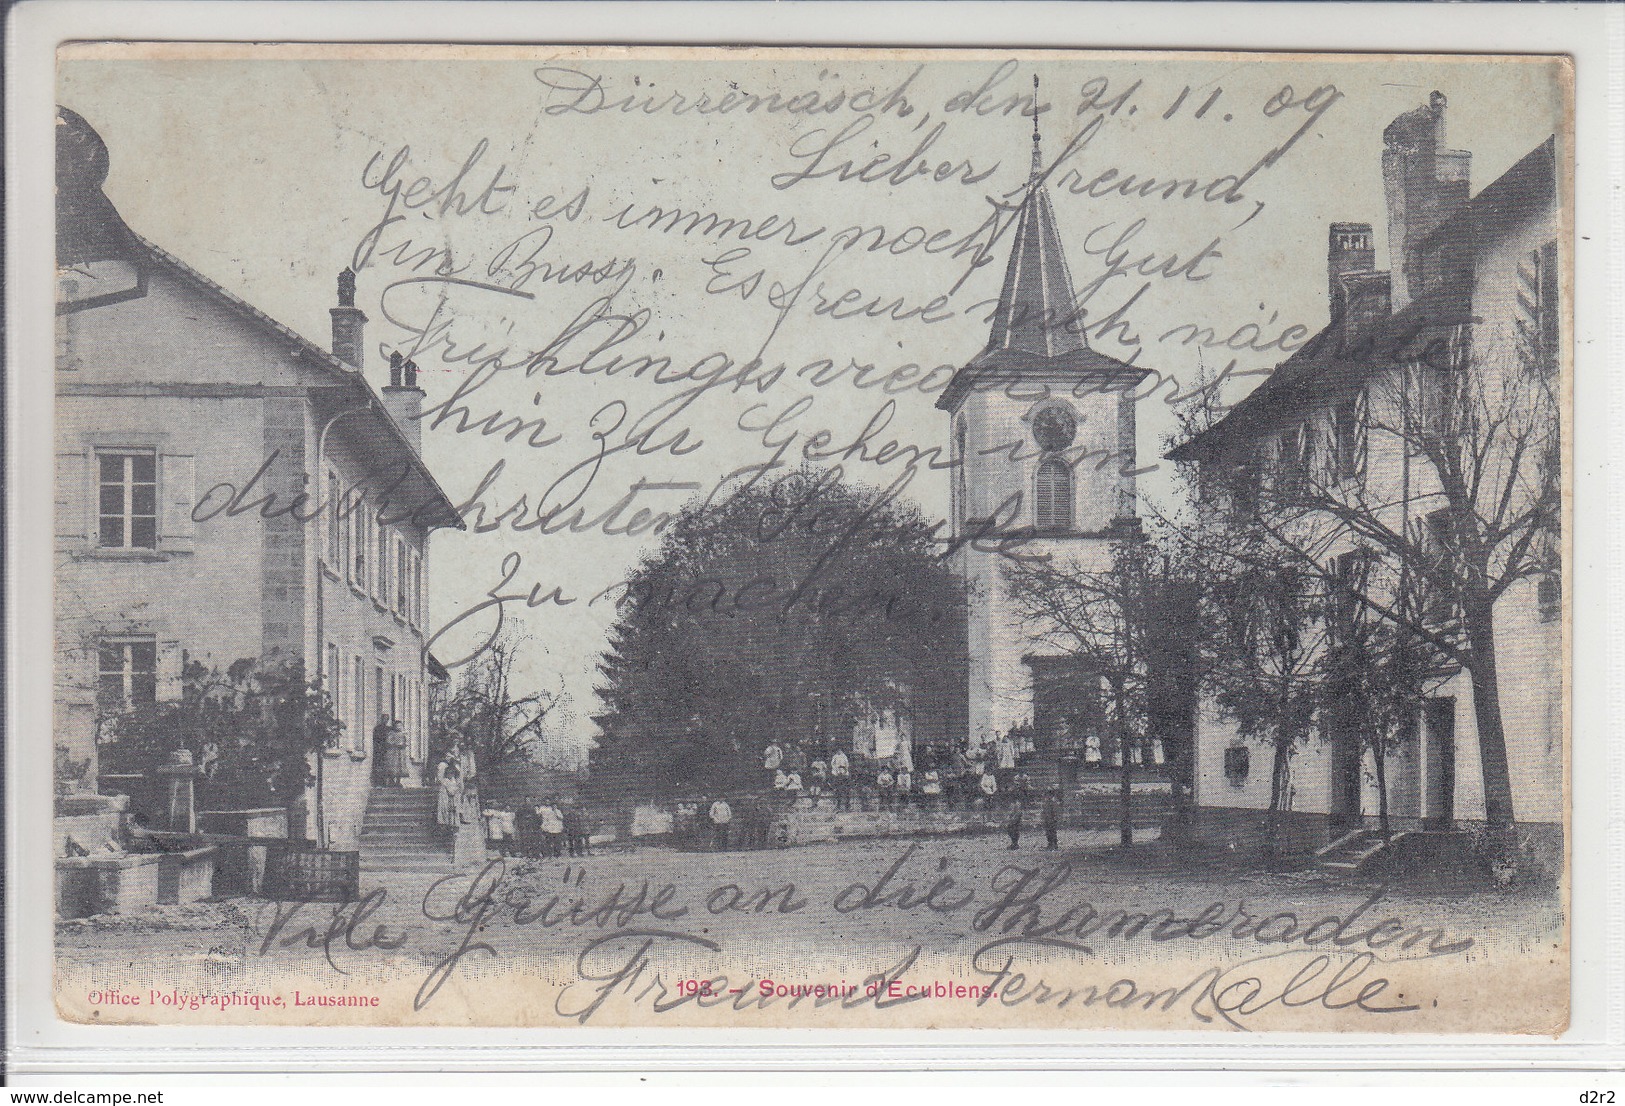 Dürrenäsch, den 21. 11. 09
Lieber freund,
Geht es immer noch Gut
in Bussy. Es freue mich nächste
Frühlings vieder dort
hin zu Gehen um
die Rekruten Schule
zu machen.
Vile Grüsse an die Khameraden
Freund Fernant alle.
193. – Souvenir d'Ecublens.
Office Polygraphique, Lausanne
www.delcampe.net
d2r2